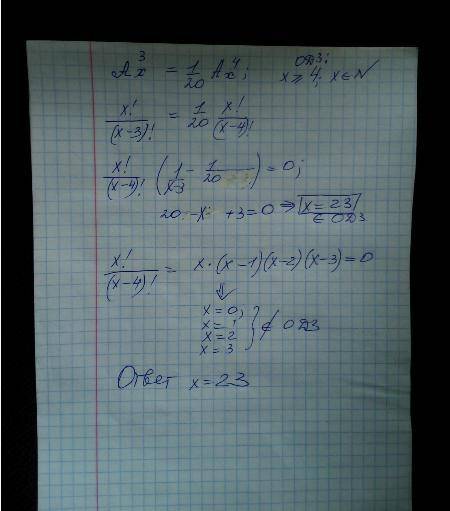 A³ₓ = 1/20 A⁴ₓ; ОДЗ: x ⩾ 4; x ∈ N
x!/(x-3)! = 1/20 x!/(x-4)!
x!/(x-4)! (1/(x-3) - 1/20) = 0;
20 - x + 3 = 0 ⇒ x = 23
∈ ОДЗ
x!/(x-4)! = x·(x-1)(x-2)(x-3) = 0
⇓
x = 0;
x = 1
x = 2
x = 3 } ∉ ОДЗ
Ответ x = 23